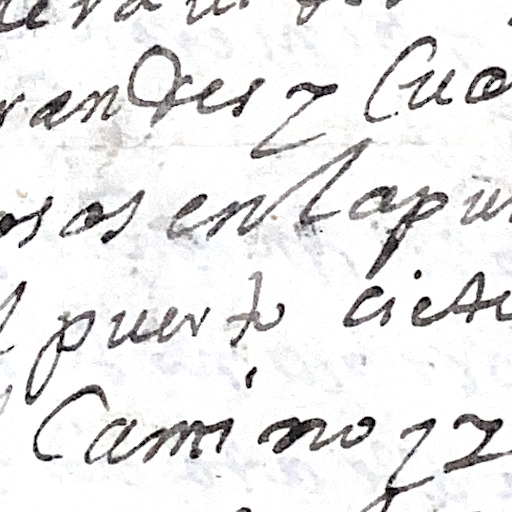 randes y Cua
osas en la pu
puerto ciete
Camino y